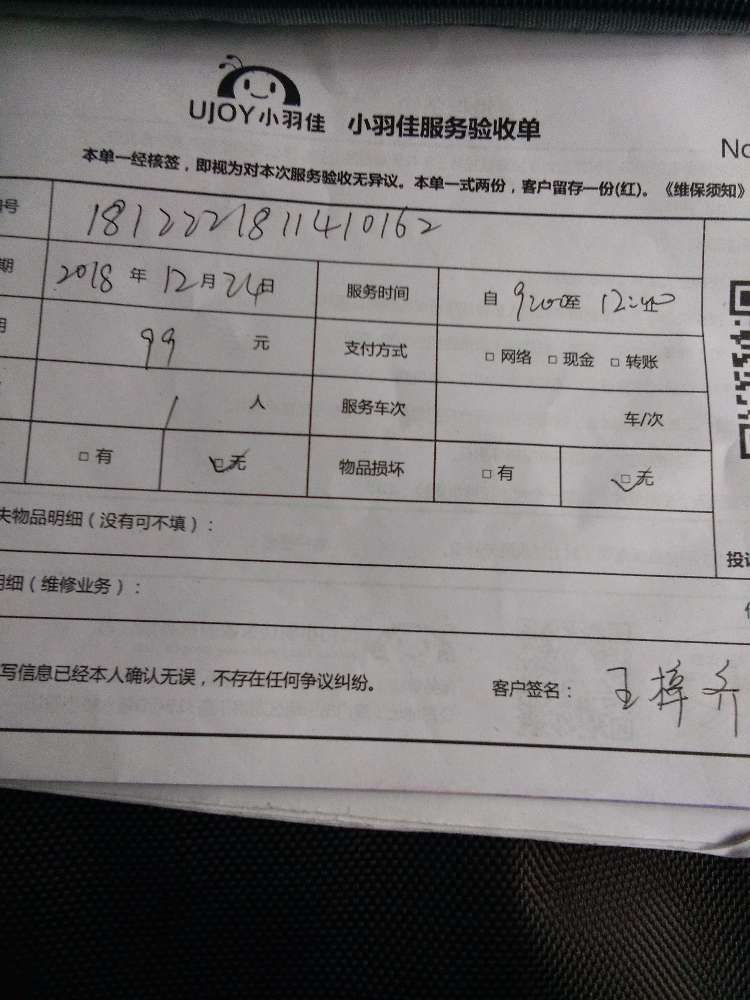 UJOY小羽佳 小羽佳服务验收单
No
本单一经核签，即视为对本次服务验收无异议。本单一式两份，客户留存一份(红)。《维保须知》
号 1812221811410162
期 2018年12月24日 服务时间 自9:00至12:00
99元 支付方式 □网络 □现金 □转账
1人 服务车次 车/次
□有 □无 物品损坏 □有 □无
失物品明细（没有可不填）：
投诉
明细（维修业务）：
写信息已经本人确认无误，不存在任何争议纠纷。 客户签名：王梓齐